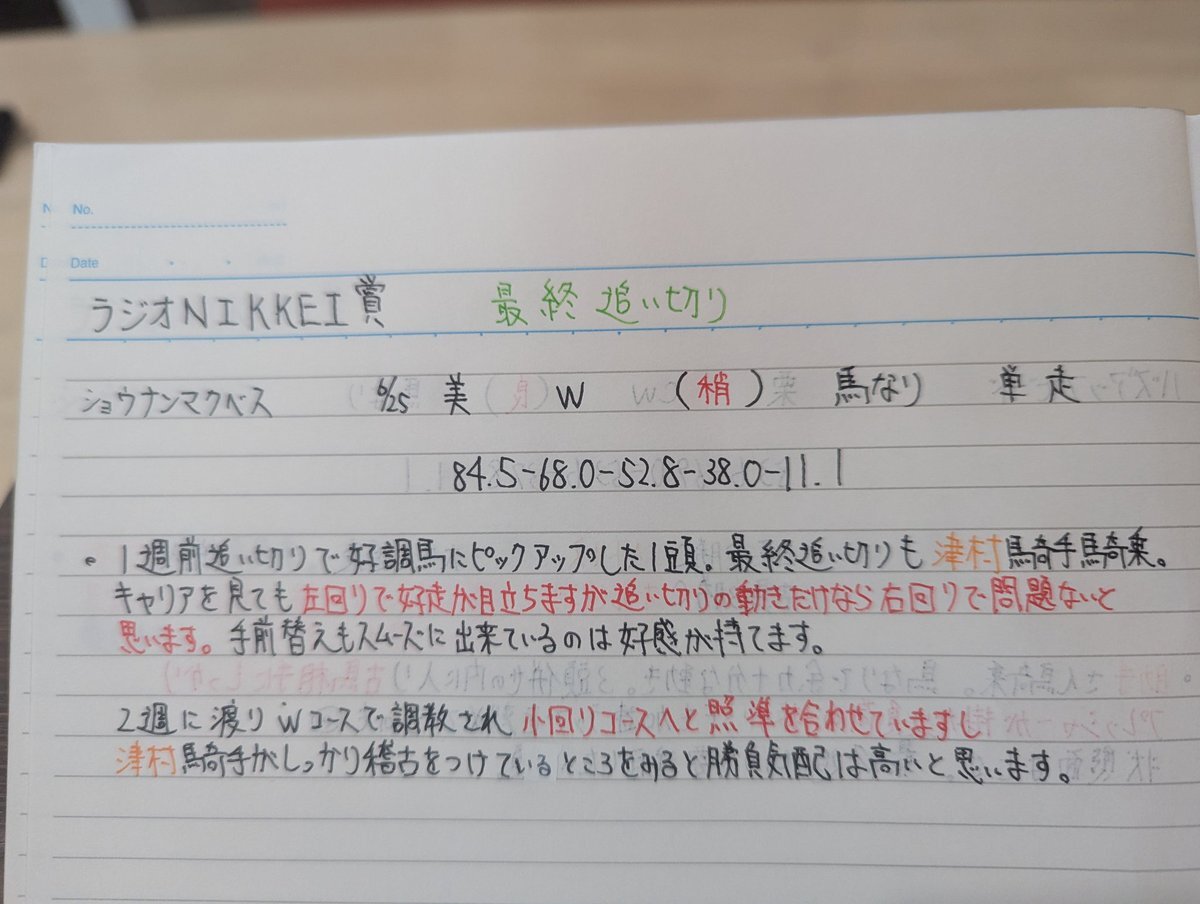 No.
Date
ラジオNIKKEI賞 最終追い切り
ショウナンマクベス 6/25 美 W (稍) 馬なり 単走
84.5-68.0-52.8-38.0-11.1
• 1週前追い切りで好調馬にピックアップした1頭。最終追い切りも津村騎手騎乗。
キャリアを見ても左回りで好走が目立ちますが追い切りの動きだけなら右回りで問題ないと
思います。手前替えもスムーズに出来ているのは好感が持てます。
2週に渡りWコースで調教され小回りコースへと照準を合わせていますし
津村騎手がしっかり稽古をつけているところをみると勝負気配は高いと思います。